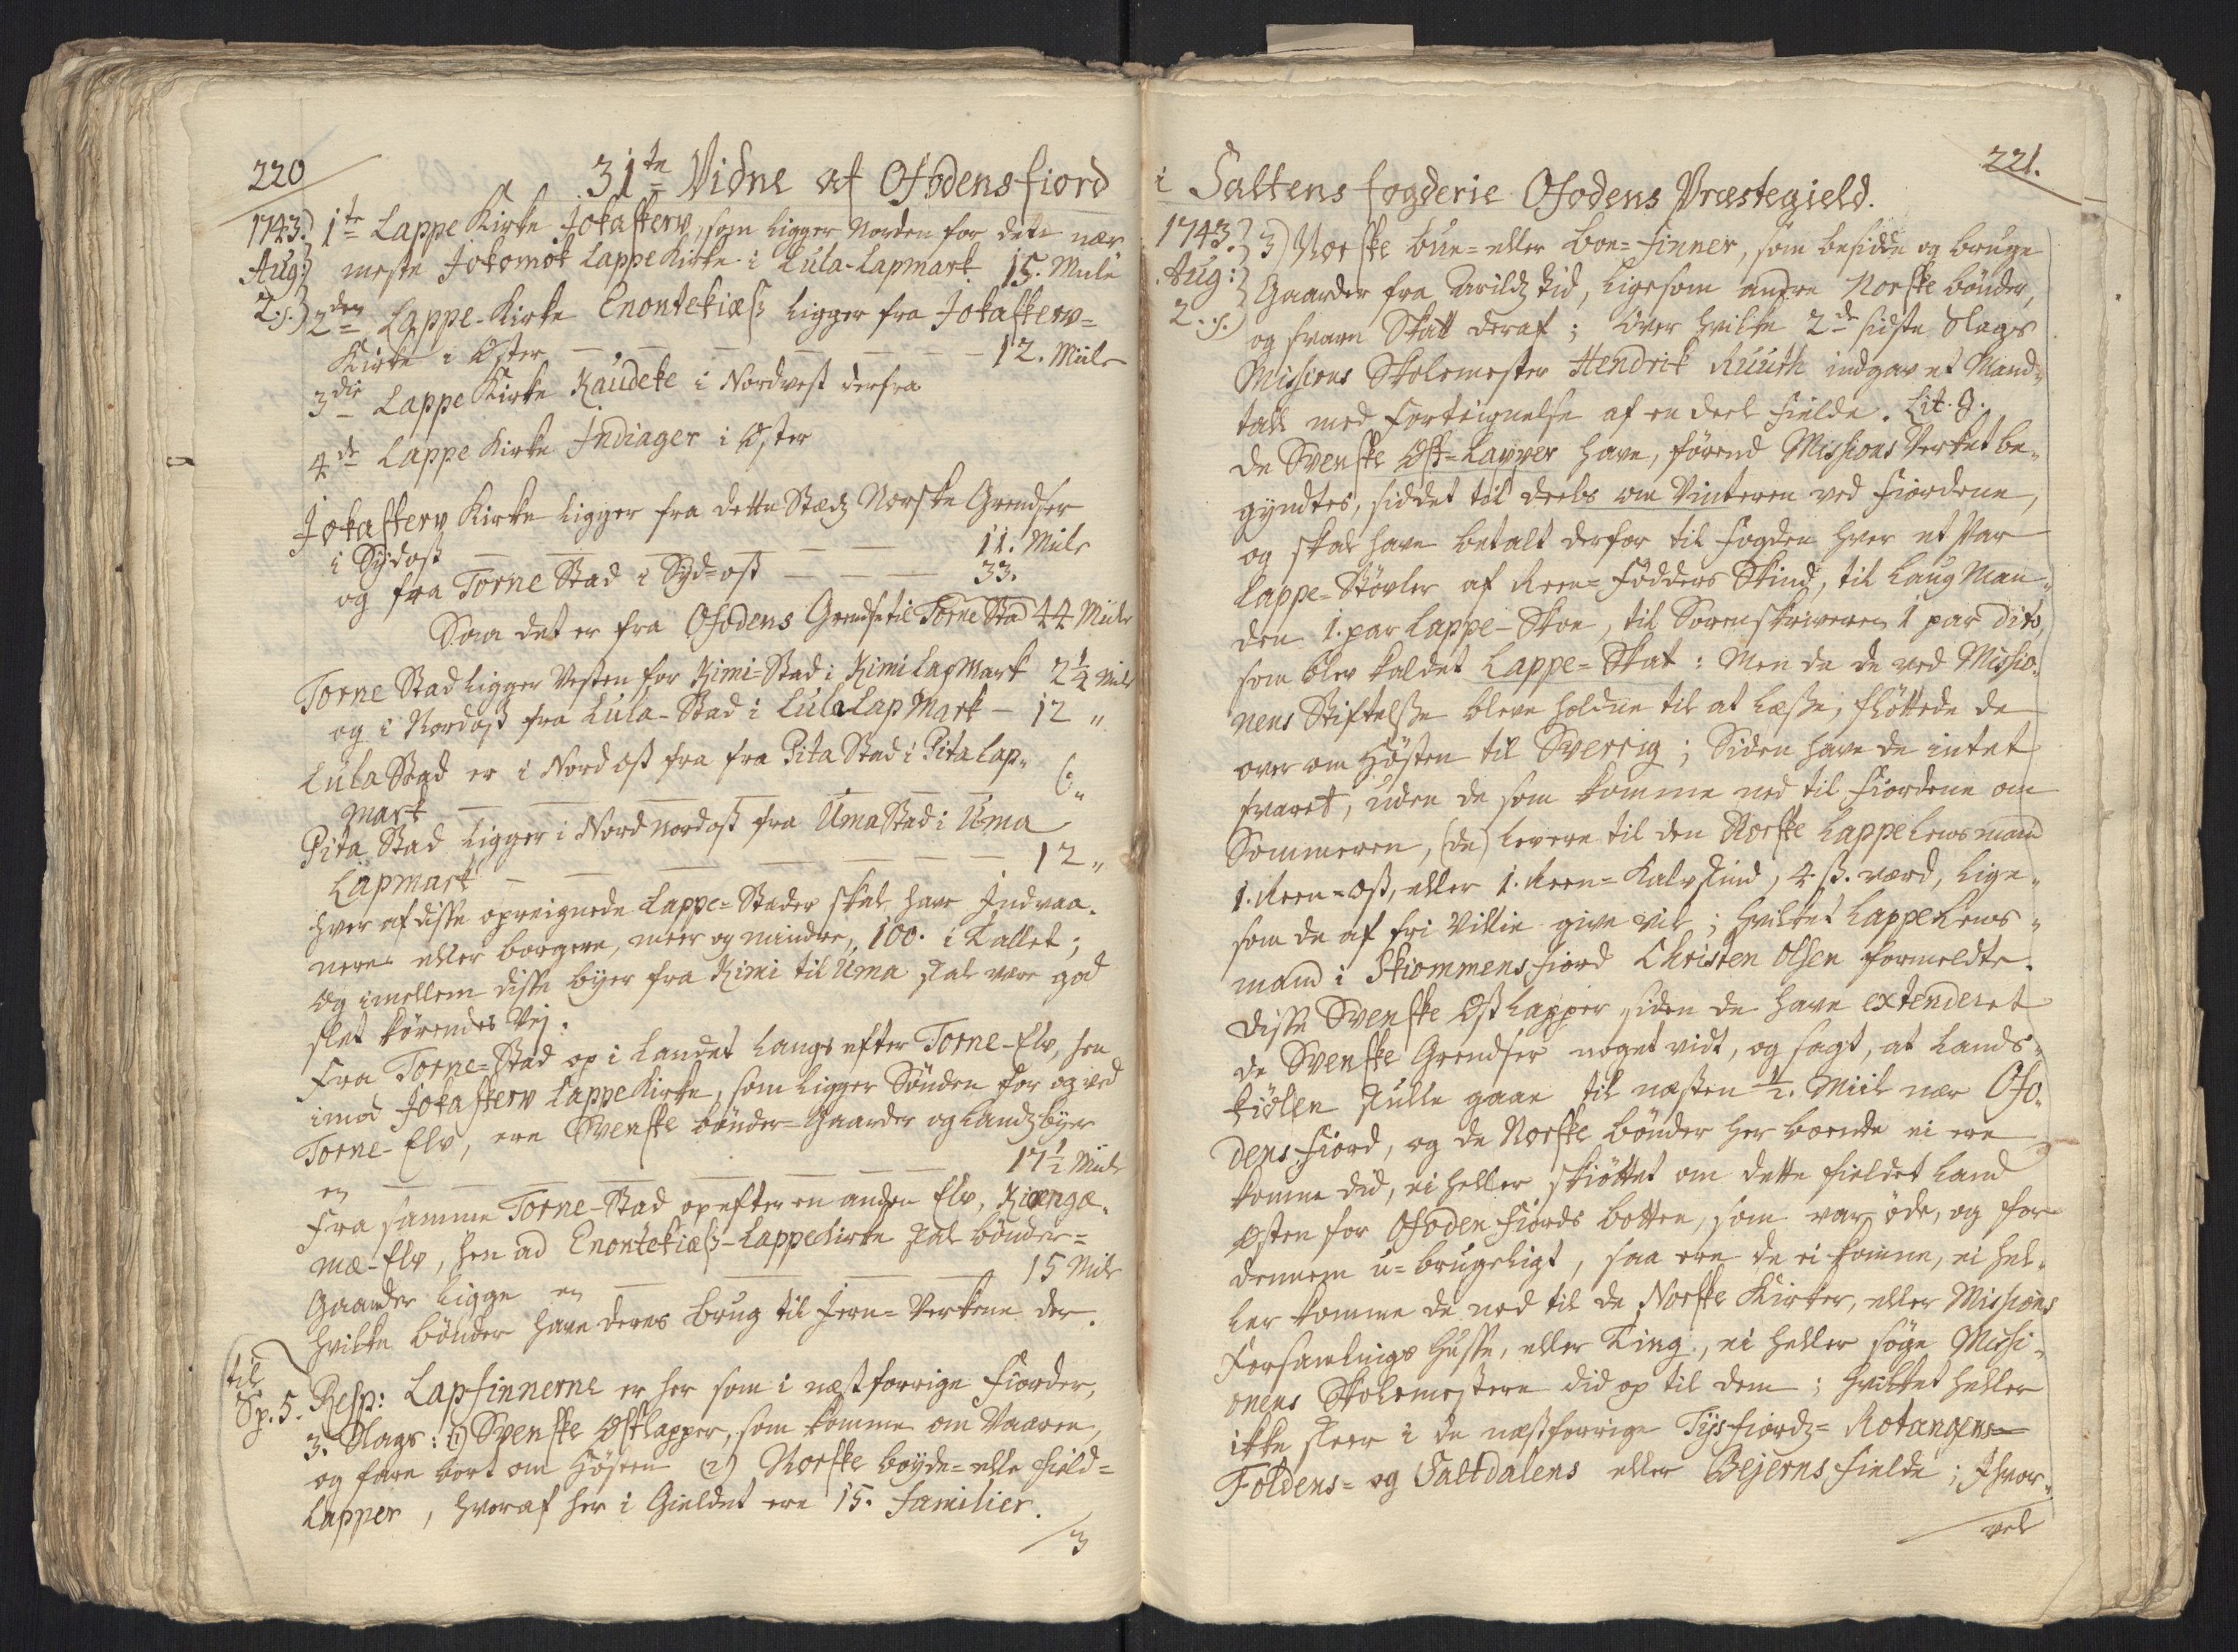 220
31te Vidne af Ofodensfiord
1743.
Aug:
2.s.)
1te Lappe Kirke Jokasjerv, som ligger Norden for dete nær
meste Jokomok Lappe Kirke i Lula-Lapmark 15. Mile
2den Lappe-Kirke Enontekiæss ligger fra Jokasjerv=
Kirke i Øster — — — — — — 12. Miile
3die Lappe Kirke Kaudeke i Nordvest derfra
4de Lappe Kirke Indiager i Øster
Jokasjerv Kirke ligger fra dette Stædz Norske Grendser
i Sydost — — — — — — 11. Mile
og fra Torne Stad i Syd=ost — — — 33.
Saa det er fra Ofodens Grendse til Torne Stad 44 Miile
Torne Stad ligger Vesten for Kimi=Stad i Kimi Lap Mark 2 1/4 Mile
og i Nordost fra Lula-Stad i Lula Lap Mark — 12 "
Lula Stad er i Nordost fra fra Pita Stad i Pita Lap„
mark — — — — — — 6 „
Pita Stad ligger i Nord nordost fra Uma Stad i Uma
Lapmark — — — — — — 12 „
hver af disse opreignede Lappe=Stæder skal have Indvaa„
nere eller borgere, meer og mindre, 100. i Tallet;
Og imellem disse byer fra Kimi til Uma skal være god
slet kørendes Vej.
Fra Torne=Stad op i Landet langs efter Torne-Elv, hen
imod Jokasjerv Lappe Kirke, som ligger Sønden for og ved
Torne-Elv, ere Svenske bønder=Gaarder og Landzbyer
en — — — — — — 17 1/2 Mile
Fra samme Torne-Stad op efter en anden Elv, Kiængæ„
mæ-Elv, hen ad Enontekiæss-Lappe Kirke skal bønder=
Gaarder ligge en — — — — 15 Mile
hvilke bønder have deres brug til Jern=Verkene der.
til
Sp. 5.
Resp: Lapfinnerne er her som i næst forrige Fiorder,
3. Slags: 1) Svenske Østlapper, som komme om Vaaren,
og fare bort om Høsten (2) Norske bøyde=elle Field=
Lapper, hvoraf her i Gieldet ere 15. Familier.
3
221.
i Saltens fogderie Ofodens Præstegield.
1743.
Aug:
2.s.)
3) Norske bue=eller boe=finner, som besidde og bruge
Gaarder fra Arildz tid, ligesom andre Norske bønder,
og svare Skatt deraf; Over hvilke 2de sidste Slags
Missions Skolemester Hendrik Ruuth indgav et Mand„
tall med Forteignelse af en deel Fielde. Lit. J.
De Svenske Øst=Lapper have, førend Missions Verket be„
gyndtes, siddet til deels om Vinteren ved Fiordene,
og skal have betalt derfor til Fogden hver et Par
Lappe=Støvler af Reen=Fødders Skind, til Laug Man„
den 1. par Lappe-Skoe, til Sorenskriveren 1 par dito,
som blev kaldet Lappe=Skat: Men da de ved Missio„
nens Stiftelsse bleve holdne til at Læsse, fløttede de
over om Høsten til Sverrig; Siden have de intet
svaret, uden de som komme ned til Fiordene om
Sommeren, (de) levere til den Norske Lappe Lensmand
1. Reen=Ost, eller 1. Reen=Kalvskind, 4. ß. værd, lige„
som de af fri Villie give vil; hvilket Lappe Lens„
mand i Skiommensfiord Christen Olsen formeldte.
Disse Svenske Øst Lapper, siden de have extenderet
de Svenske Grendser noget vidt, og sagt, at Lands„
kiølen skulle gaae til næsten 1/2. Miil nær Ofo„
dens Fiord, og de Norske bønder her boende ei ere
komne did, ei heller skiøttet om dette Fieldet Land
Østen for Ofoden Fiords botten, som var øde, og for
dennem u=brugeligt, saa ere de ei komne, ei hel„
ler komme de ned til de Norske Kirker, eller Missions
Forsamlings Husse, eller Ting, ei heller søge Missi„
onens Skolemestere did op til dem; hvilket heller
ikke skeer i de næst forrige Tysfiordz= Rotangens=
Foldens= og Saltdalens eller Bejerns Fielde; Ihvor„
vel